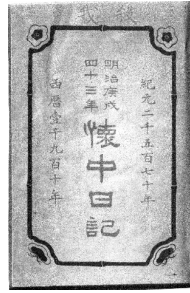 紀元二千五百七十年
明治庚戌
四十三年
懷中日記
西暦壹千九百十年